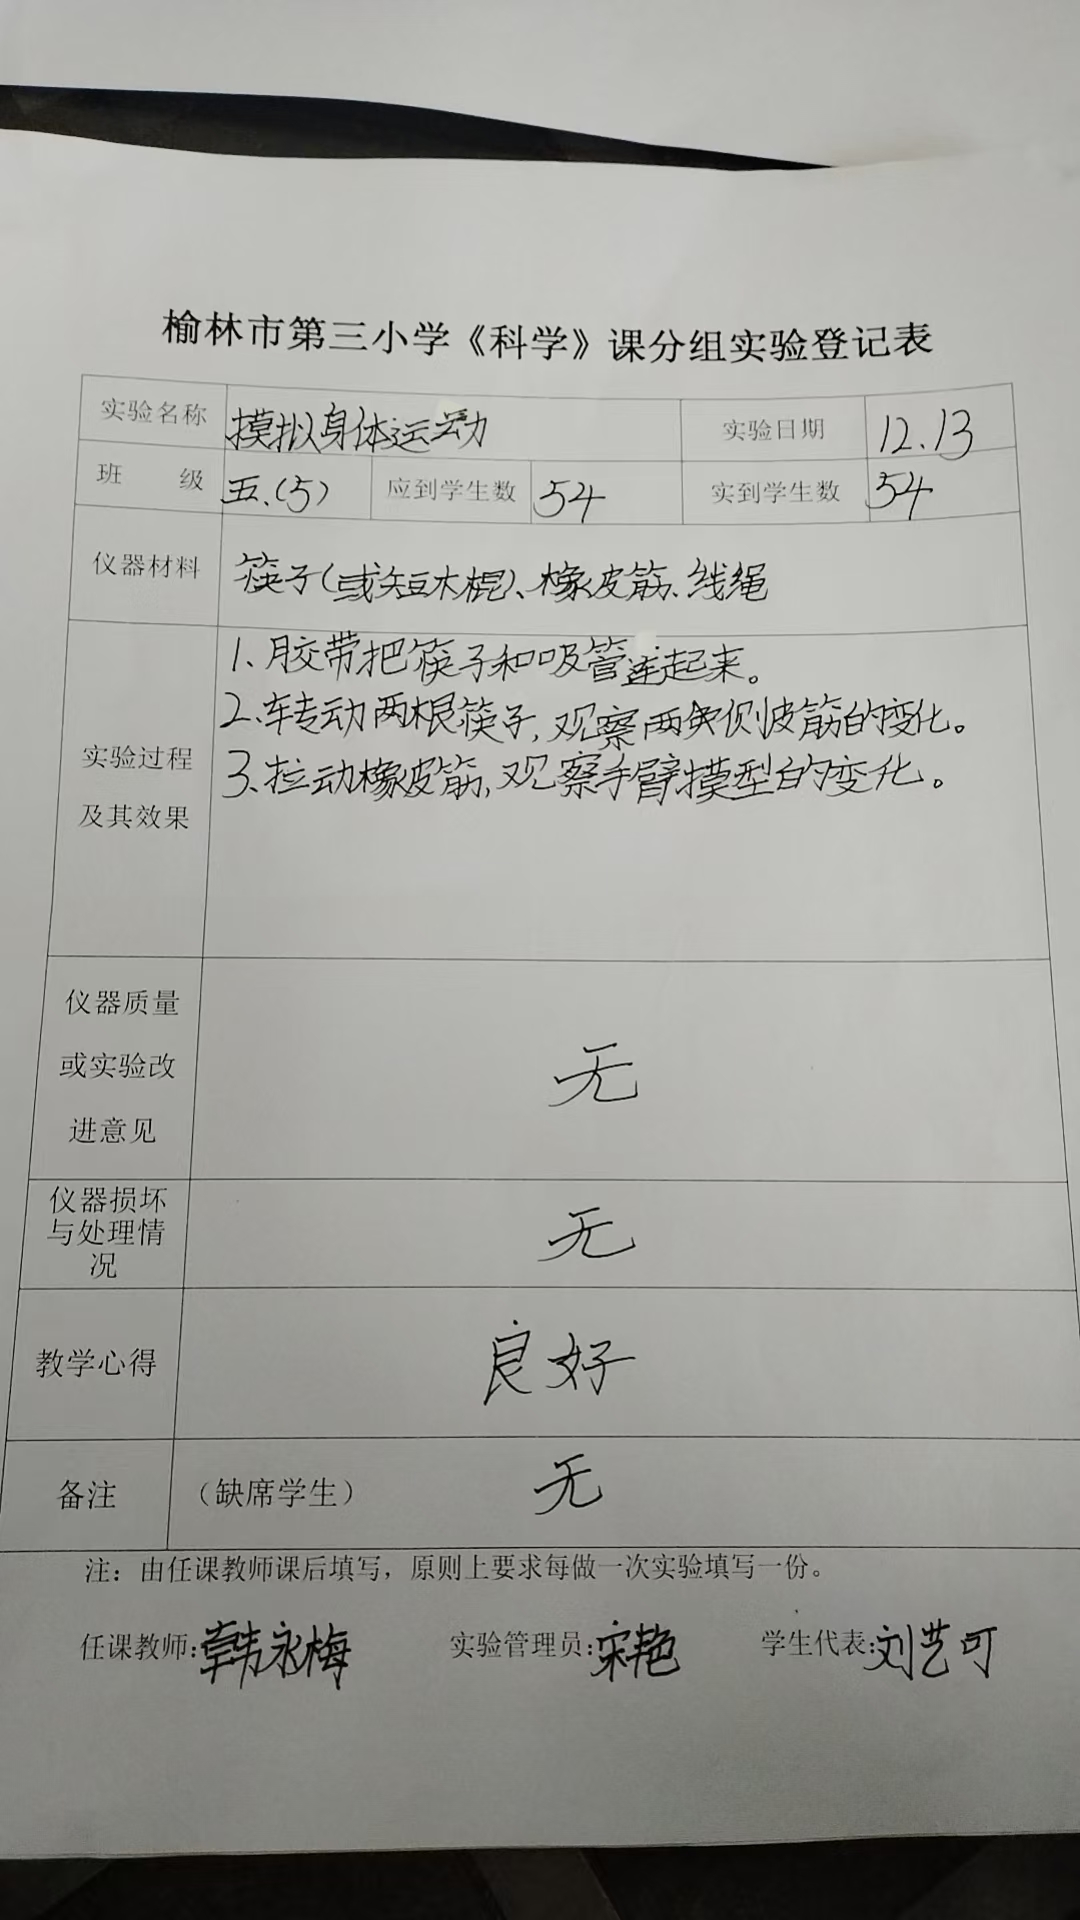 榆林市第三小学《科学》课分组实验登记表
实验名称 模拟身体运动 实验日期 12.13
班 级 五.(5) 应到学生数 54 实到学生数 54
仪器材料 筷子(或短木棍)、橡皮筋、线绳
1、胶带把筷子和吸管连起来。
2、转动两根筷子,观察两侧皮筋的变化。
3、拉动橡皮筋,观察手臂模型的变化。
实验过程
及其效果
仪器质量
或实验改
进意见
无
仪器损坏
与处理情
况
无
教学心得 良好
备注 （缺席学生） 无
注：由任课教师课后填写，原则上要求每做一次实验填写一份。
任课教师:韩永梅 实验管理员:宋艳 学生代表:刘艺可